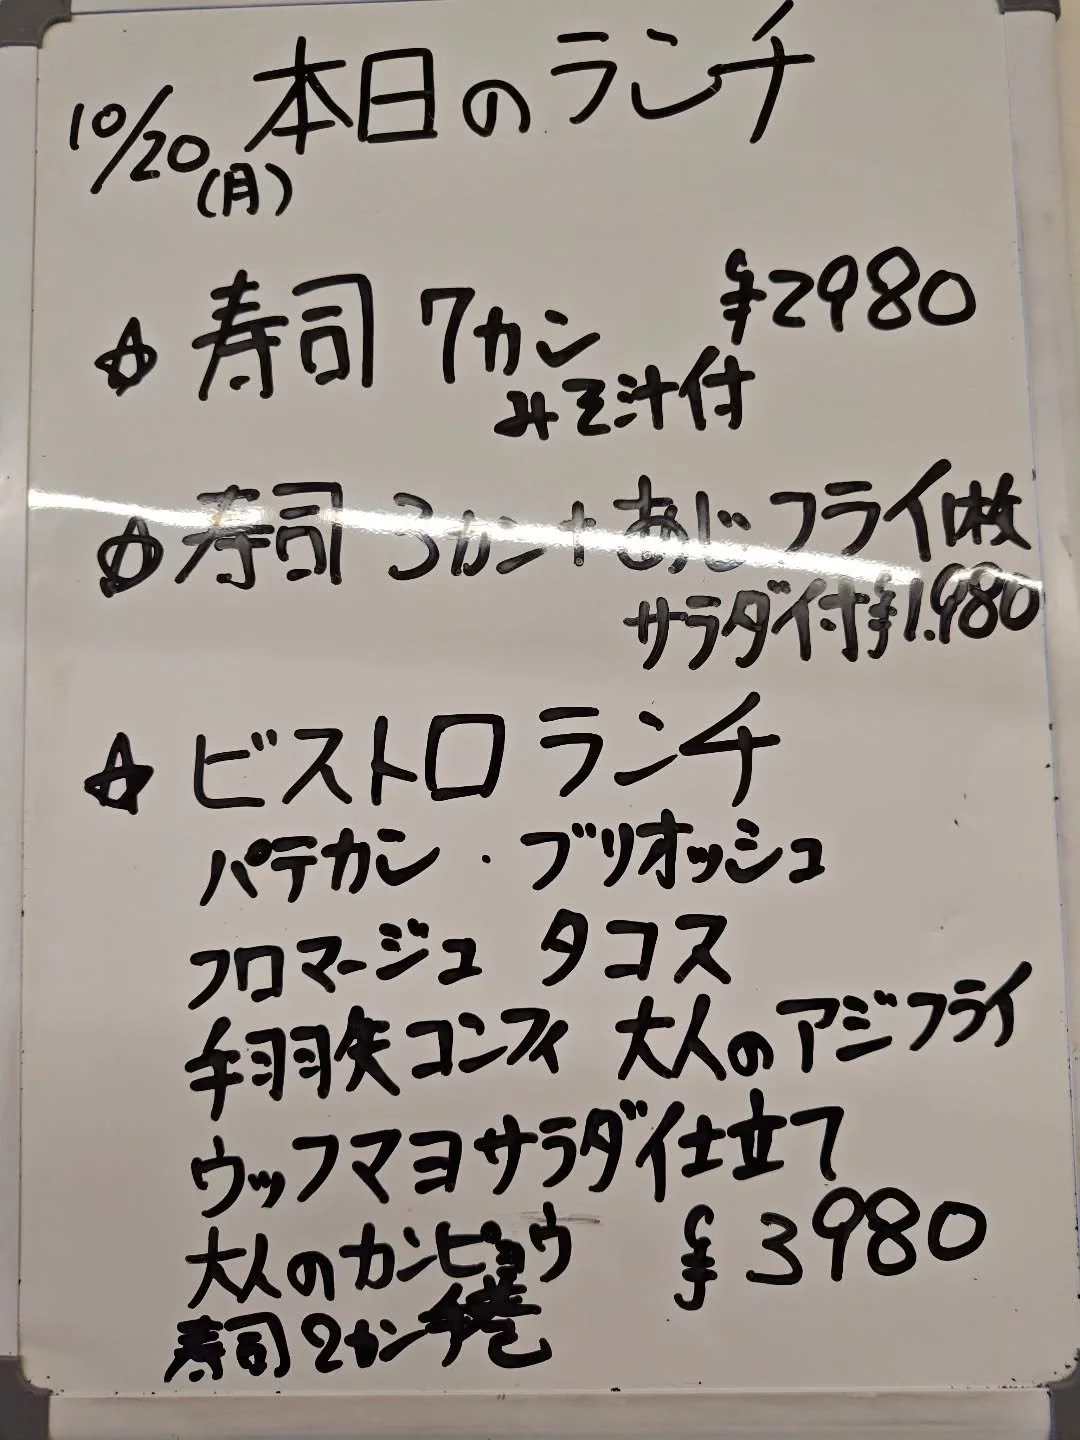 本日のランチ
10/20(月)
☆寿司 7カン ¥2980
みそ汁付
☆寿司 3カン+あじフライ1枚
サラダ付¥1.980
☆ビストロランチ
パテカン・ブリオッシュ
フロマージュ タコス
手羽先コンフィ 大人のアジフライ
ウッフマヨサラダ仕立て
大人のカンピョウ ¥3980
寿司2カン手巻